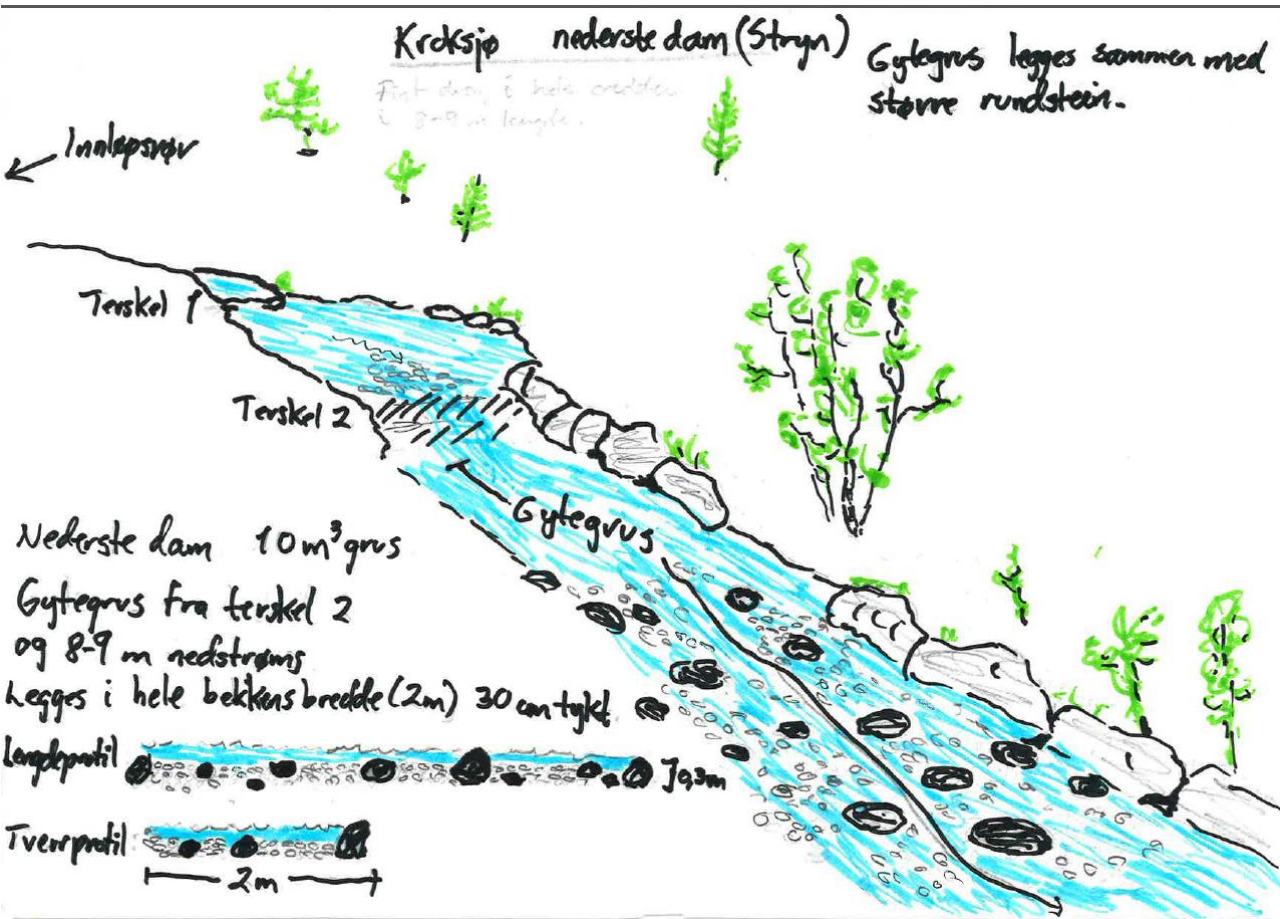 Kroksjø nederste dam (Stryn)
Gytegrus legges sammen med
større rundstein.
i hele bredden
i 8-9 m lengde.
Innløpsrør
Terskel 1
Terskel 2
Gytegrus
Nederste dam 10 m³ grus
Gytegrus fra terskel 2
og 8-9 m nedstrøms
Legges i hele bekkens bredde (2m) 30 cm tykt
Lengdeprofil
0,3m
Tverrprofil
2m